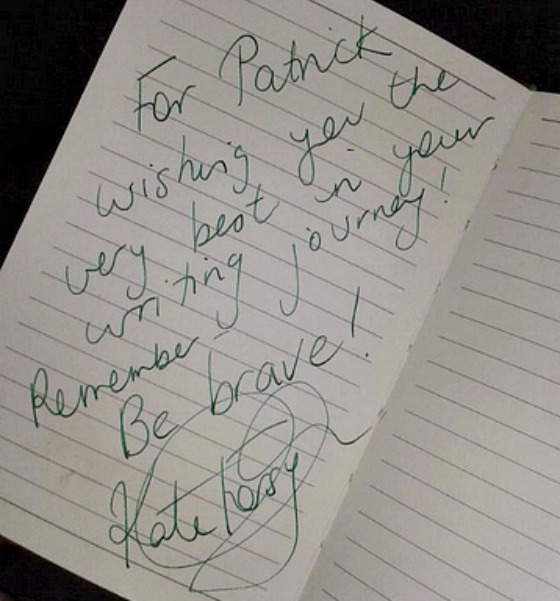 For Patrick
wishing you the
very best in your
writing journey!
Remember -
Be brave!
Kate